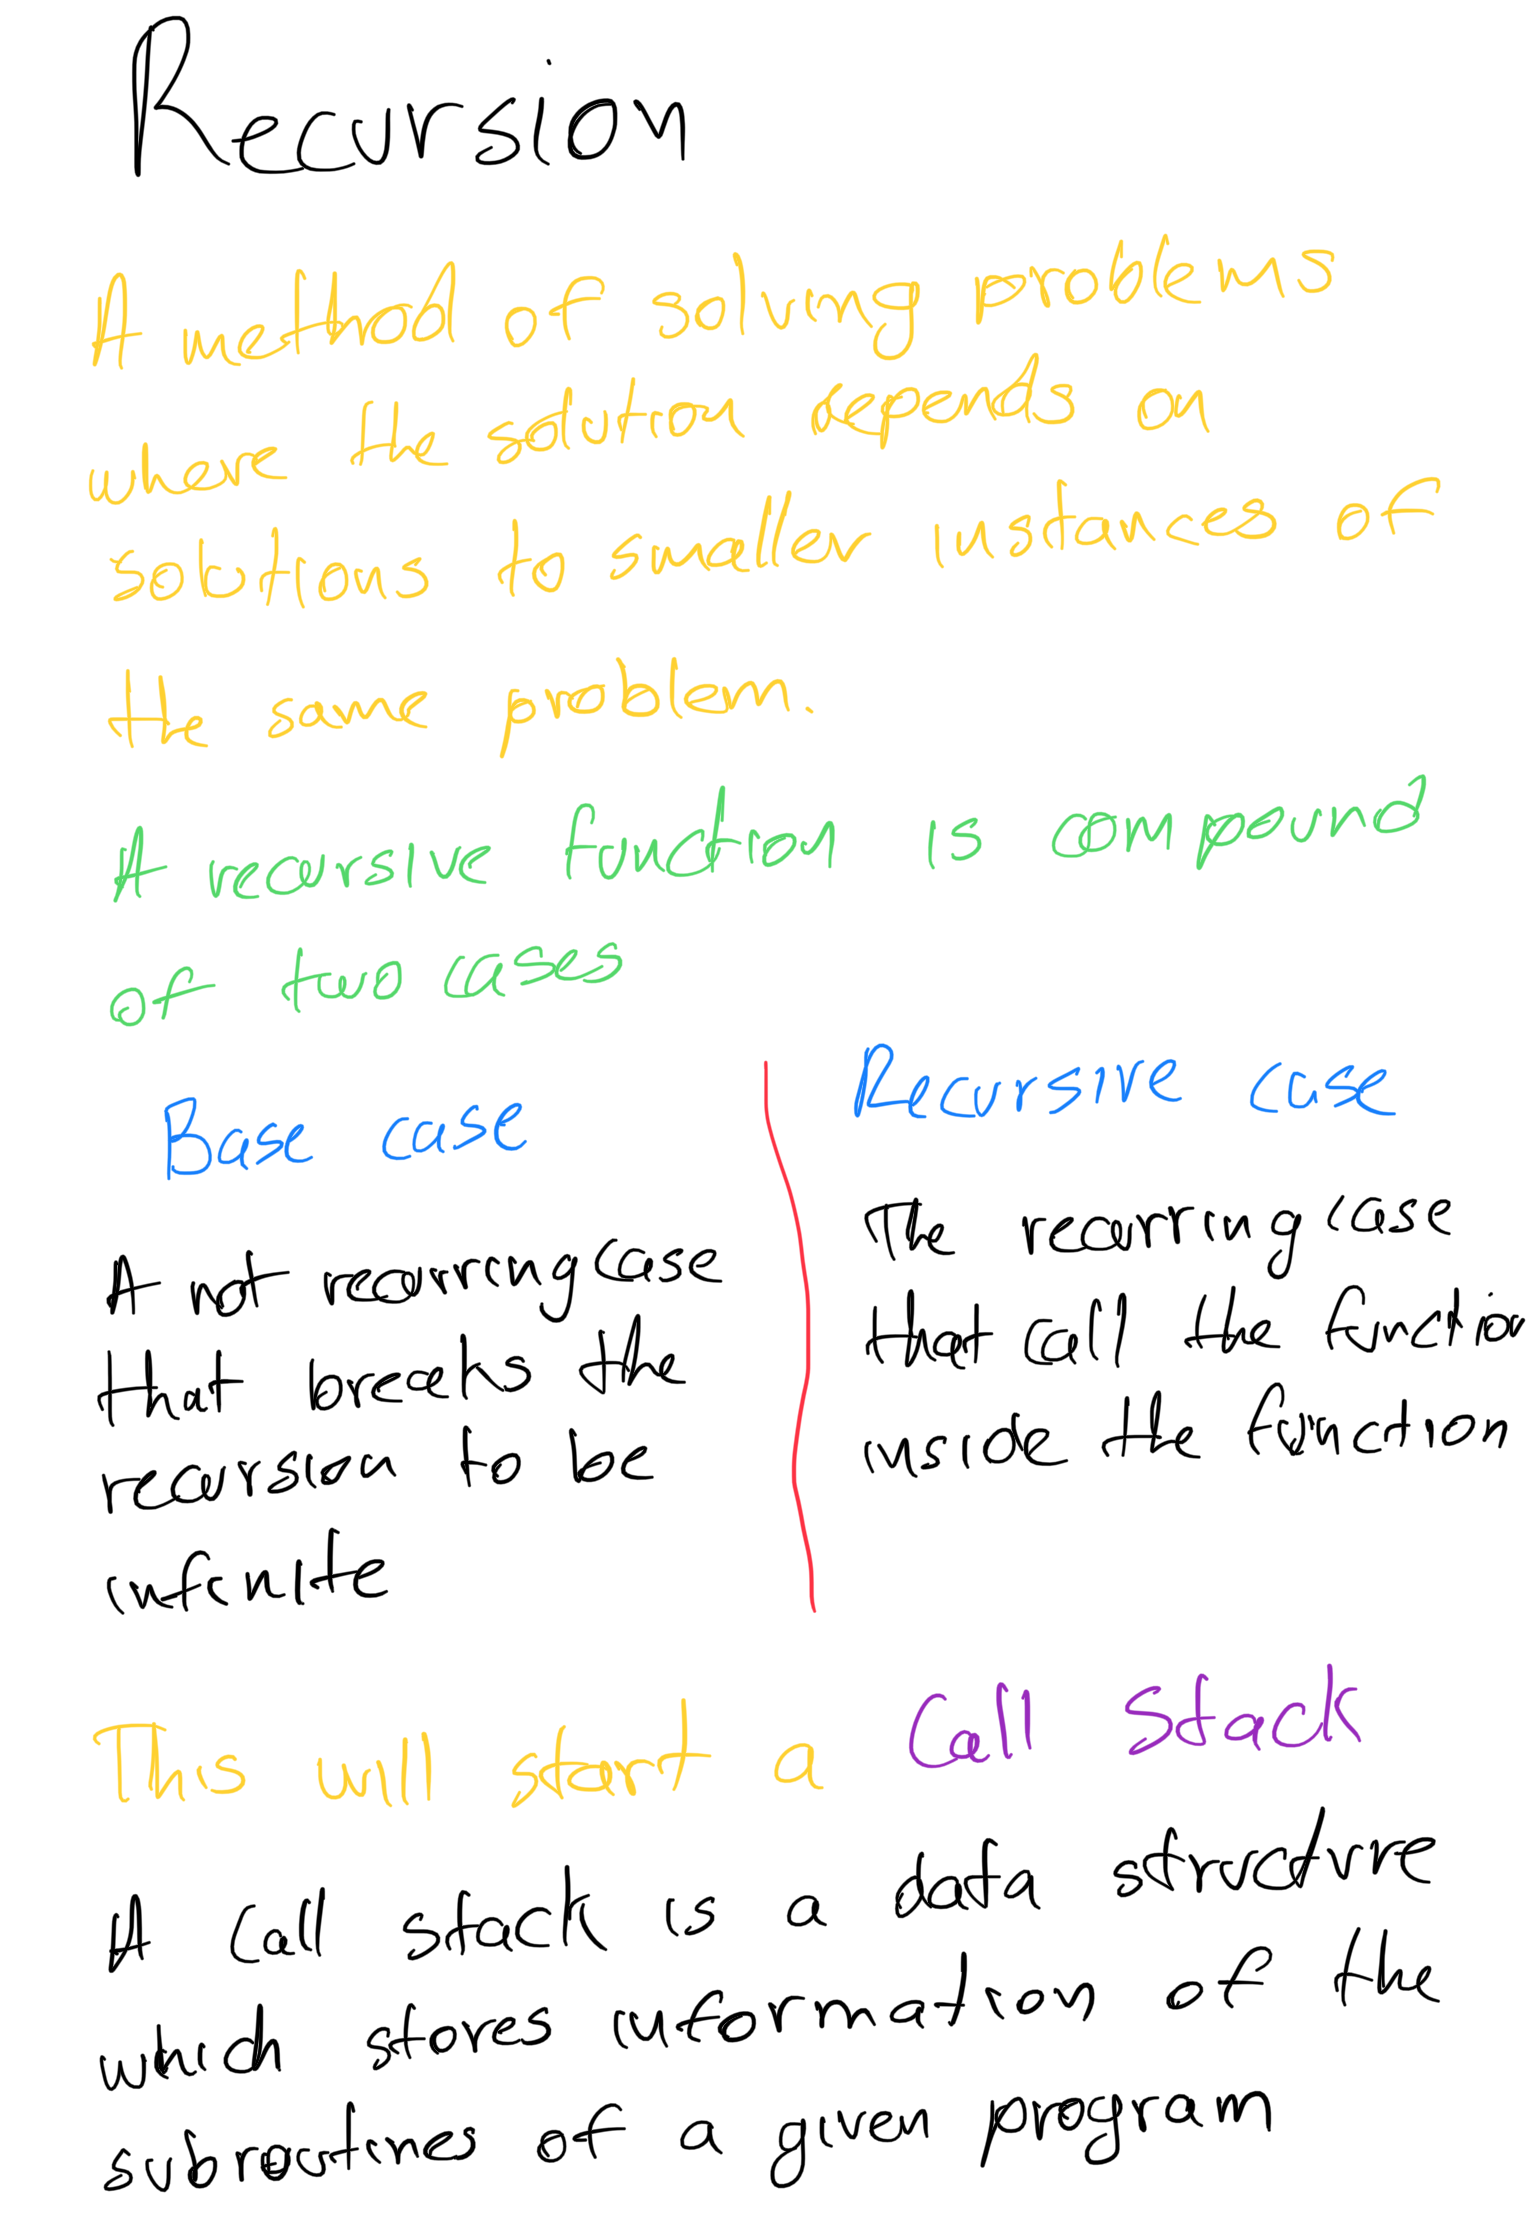 Recursion
A method of solving problems
where the solution depends on
solutions to smaller instances of
the same problem.
A recursive function is compound
of two cases
Base case
A not recurring case
that breaks the
recursion to be
infinite
Recursive case
The recurring case
that call the function
inside the function
This will start a Call Stack
A call stack is a data structure
which stores information of the
subroutines of a given program